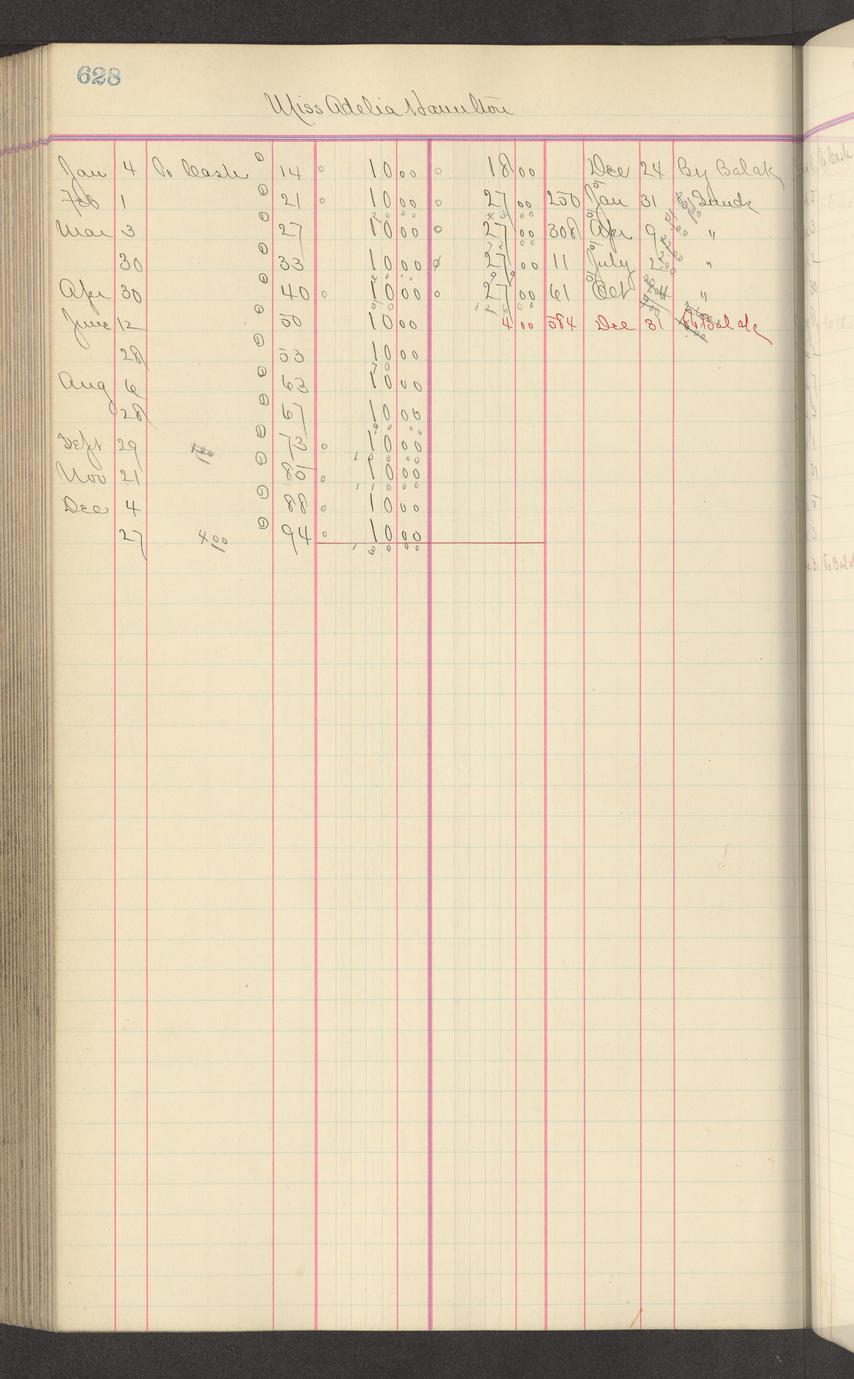 628
Miss Adelia Hamilton
Jan 4 To Cash 14 10 00 18 00 Dec 24 By Balak
Feb 1 21 10 00 27 00 250 Jan 31 " Sunds
Mar 3 27 10 00 27 00 308 Apr 9 "
30 33 10 00 27 00 11 July 2 "
Apr 30 40 10 00 27 00 61 Oct "
June 12 50 10 00 4 00 584 Dec 31 Balak
28 53 10 00
Aug 6 63 10 00
28 67 10 00
Sept 29 73 10 00
Nov 21 85 10 00
Dec 4 88 10 00
27 4 00 94 10 00